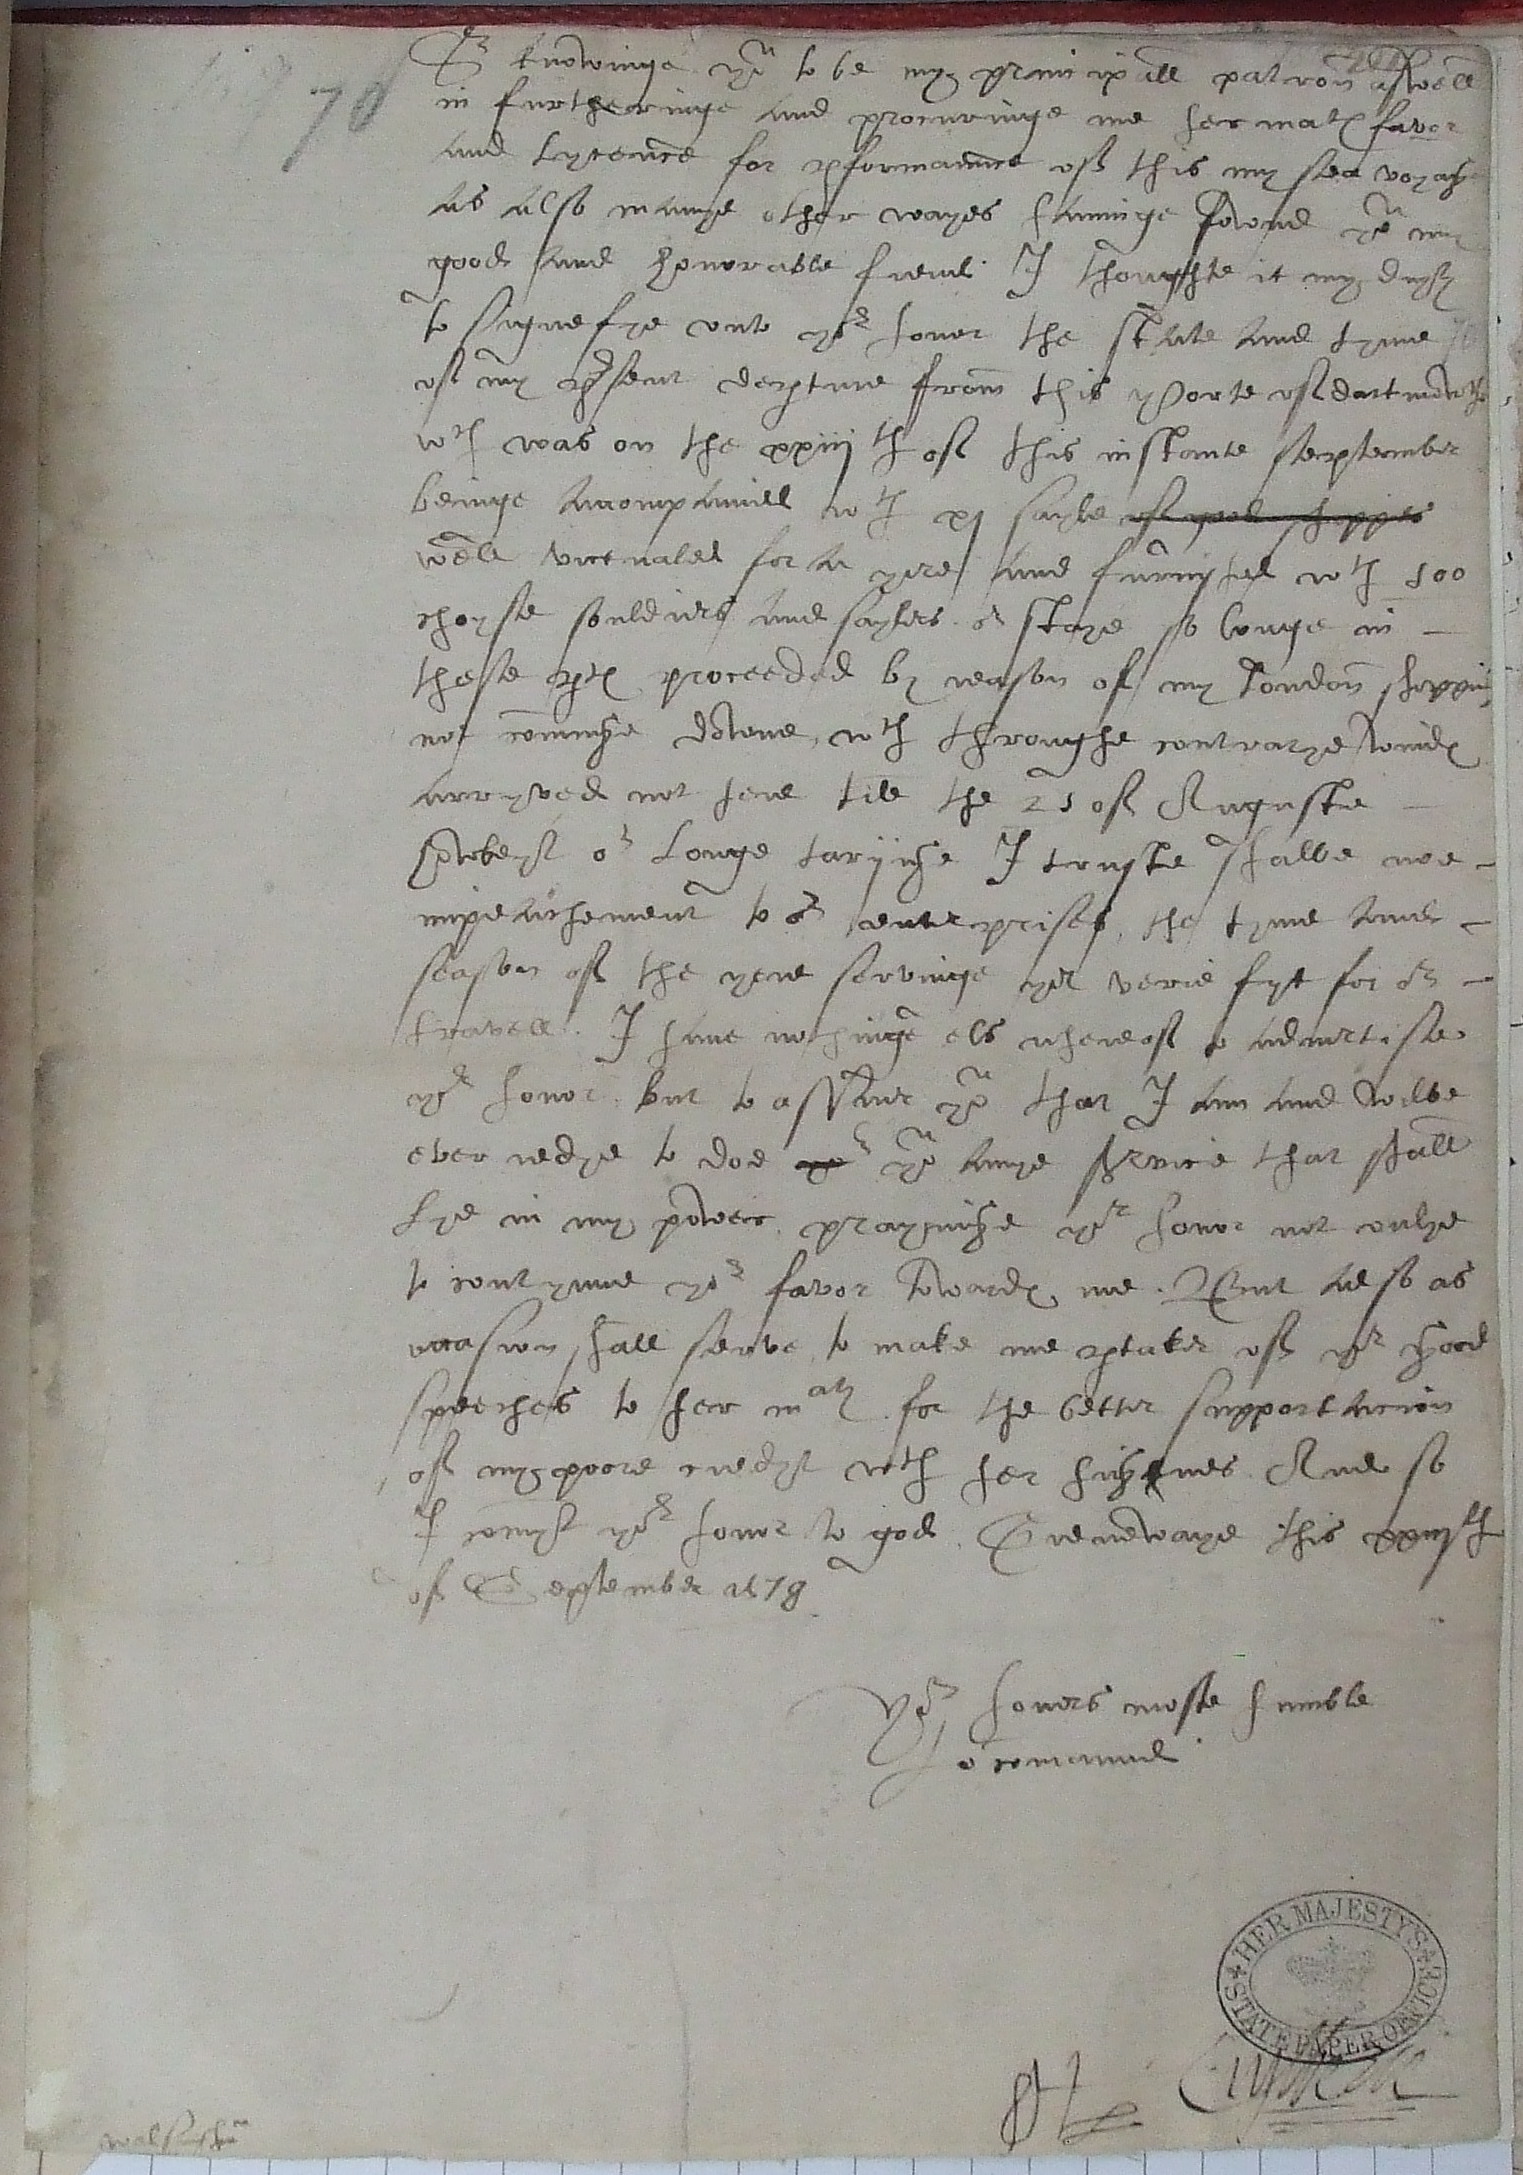 70
Sr knowinge you to be my principall patron aswell
in furtheringe and procuringe me her maties favor
and lycence for pformannce of this my sea voyage
as also manye other wayes havinge found you my
good and honorable frend. I thoughte it my dutye
to signefye unto yor honor the state and tyme
of my psent depture from this porte of dartmowth
wch was on the xxiijth of this instante september
beinge accompanied wth xj sayle of good shippes
well victualed for a yere and furnished wth 500
choyse souldiers and saylers. or staye so longe in
these ptes proceeded by reason of my London shippinge
not comminge downe, wch throughe contrarye windes
arryved not here till the 25 of Auguste
howbeyt or Longe taryinge I truste shalbe noe
impeachement to or enterprises, the tyme and
season of the yere servinge yet verie fyt for or
travell. I have nothinge els whereof to advertise
yor honor but to assure you that I am and wilbe
ever redye to doe yor you anye service that shall
Lye in my power. prayinge yor honor not onlye
to contynue yor favor towardes me. But also as
occasion shall serve to make me ptaker of yor good
speeches to her matie for the better supportacion
of my poore credyt wth her highnes. And so
I comyt yor honor to god. Grenewaye this
of September 1578
Yor honors moste humble
to command
HER MAJESTY'S STATE PAPER OFFICE
H Gylberte
Walsingham